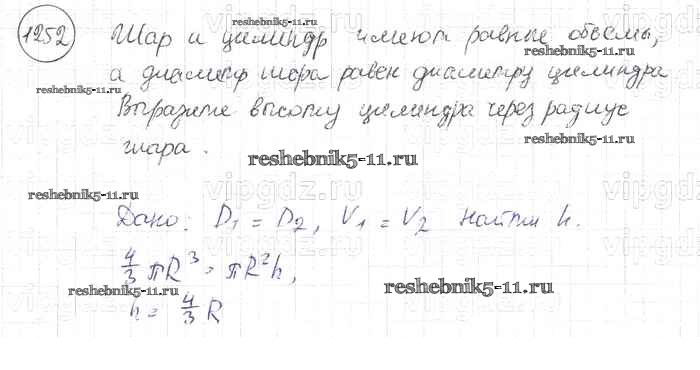 1252 Шар и цилиндр имеют равные объемы,
а диаметр шара равен диаметру цилиндра
Выразите высоту цилиндра через радиус
шара.
Дано: D₁ = D₂, V₁ = V₂ найти h.
4/3 πR³ = πR²h,
h = 4/3 R
reshebnik5-11.ru
reshebnik5-11.ru
reshebnik5-11.ru
reshebnik5-11.ru
reshebnik5-11.ru
reshebnik5-11.ru
reshebnik5-11.ru
reshebnik5-11.ru
vipgdz.ru
vipgdz.ru
vipgdz.ru
vipgdz.ru
vipgdz.ru
vipgdz.ru